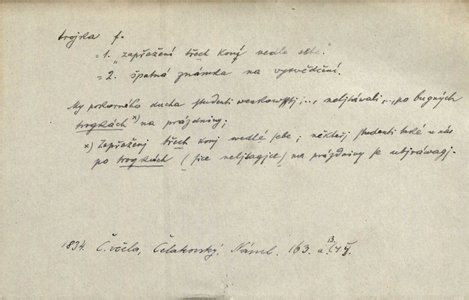 trojka f.
= 1. „zapřažení třech koný vedle sebe."
= 2. špatná známka na vysvědčení.
My pokorného ducha studenti venkovštj ..., neljtávali ..., po bugných
trogkách x) na prázdniny;
x) Zapřažený třech koný wedlé sebe; někteřj studenti také u nás
po trogkách (sice neljtagjce) na prázdniny se ubjragj.
1834. Č. včela, Čelakovský, 163. a